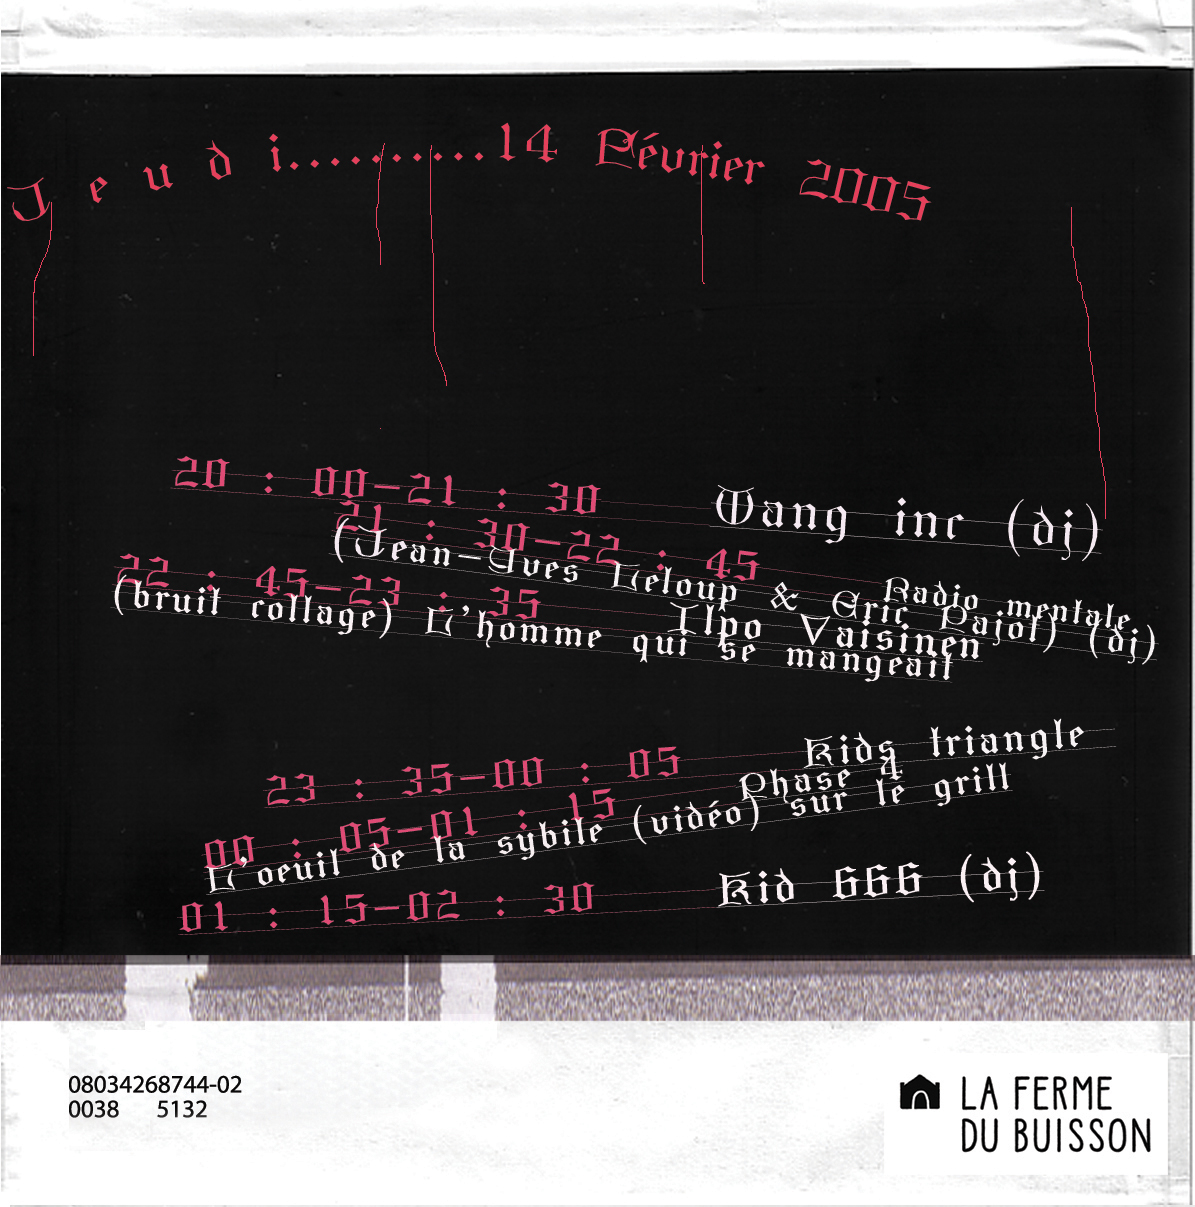 Jeudi..........14 Février 2005
20 : 00-21 : 30 Wang inc (dj)
21 : 30-22 : 45 Radio mentale
(Jean-Yves Leloup & Eric Pajot) (dj)
22 : 45-23 : 35 Ilpo Vaisinen
(bruit collage) L'homme qui se mangeait
23 : 35-00 : 05 Kids triangle
00 : 05-01 : 15 Phase 4
L'oeuil de la sybile (vidéo) sur le grill
01 : 15-02 : 30 Kid 666 (dj)
08034268744-02
0038 5132
LA FERME
DU BUISSON